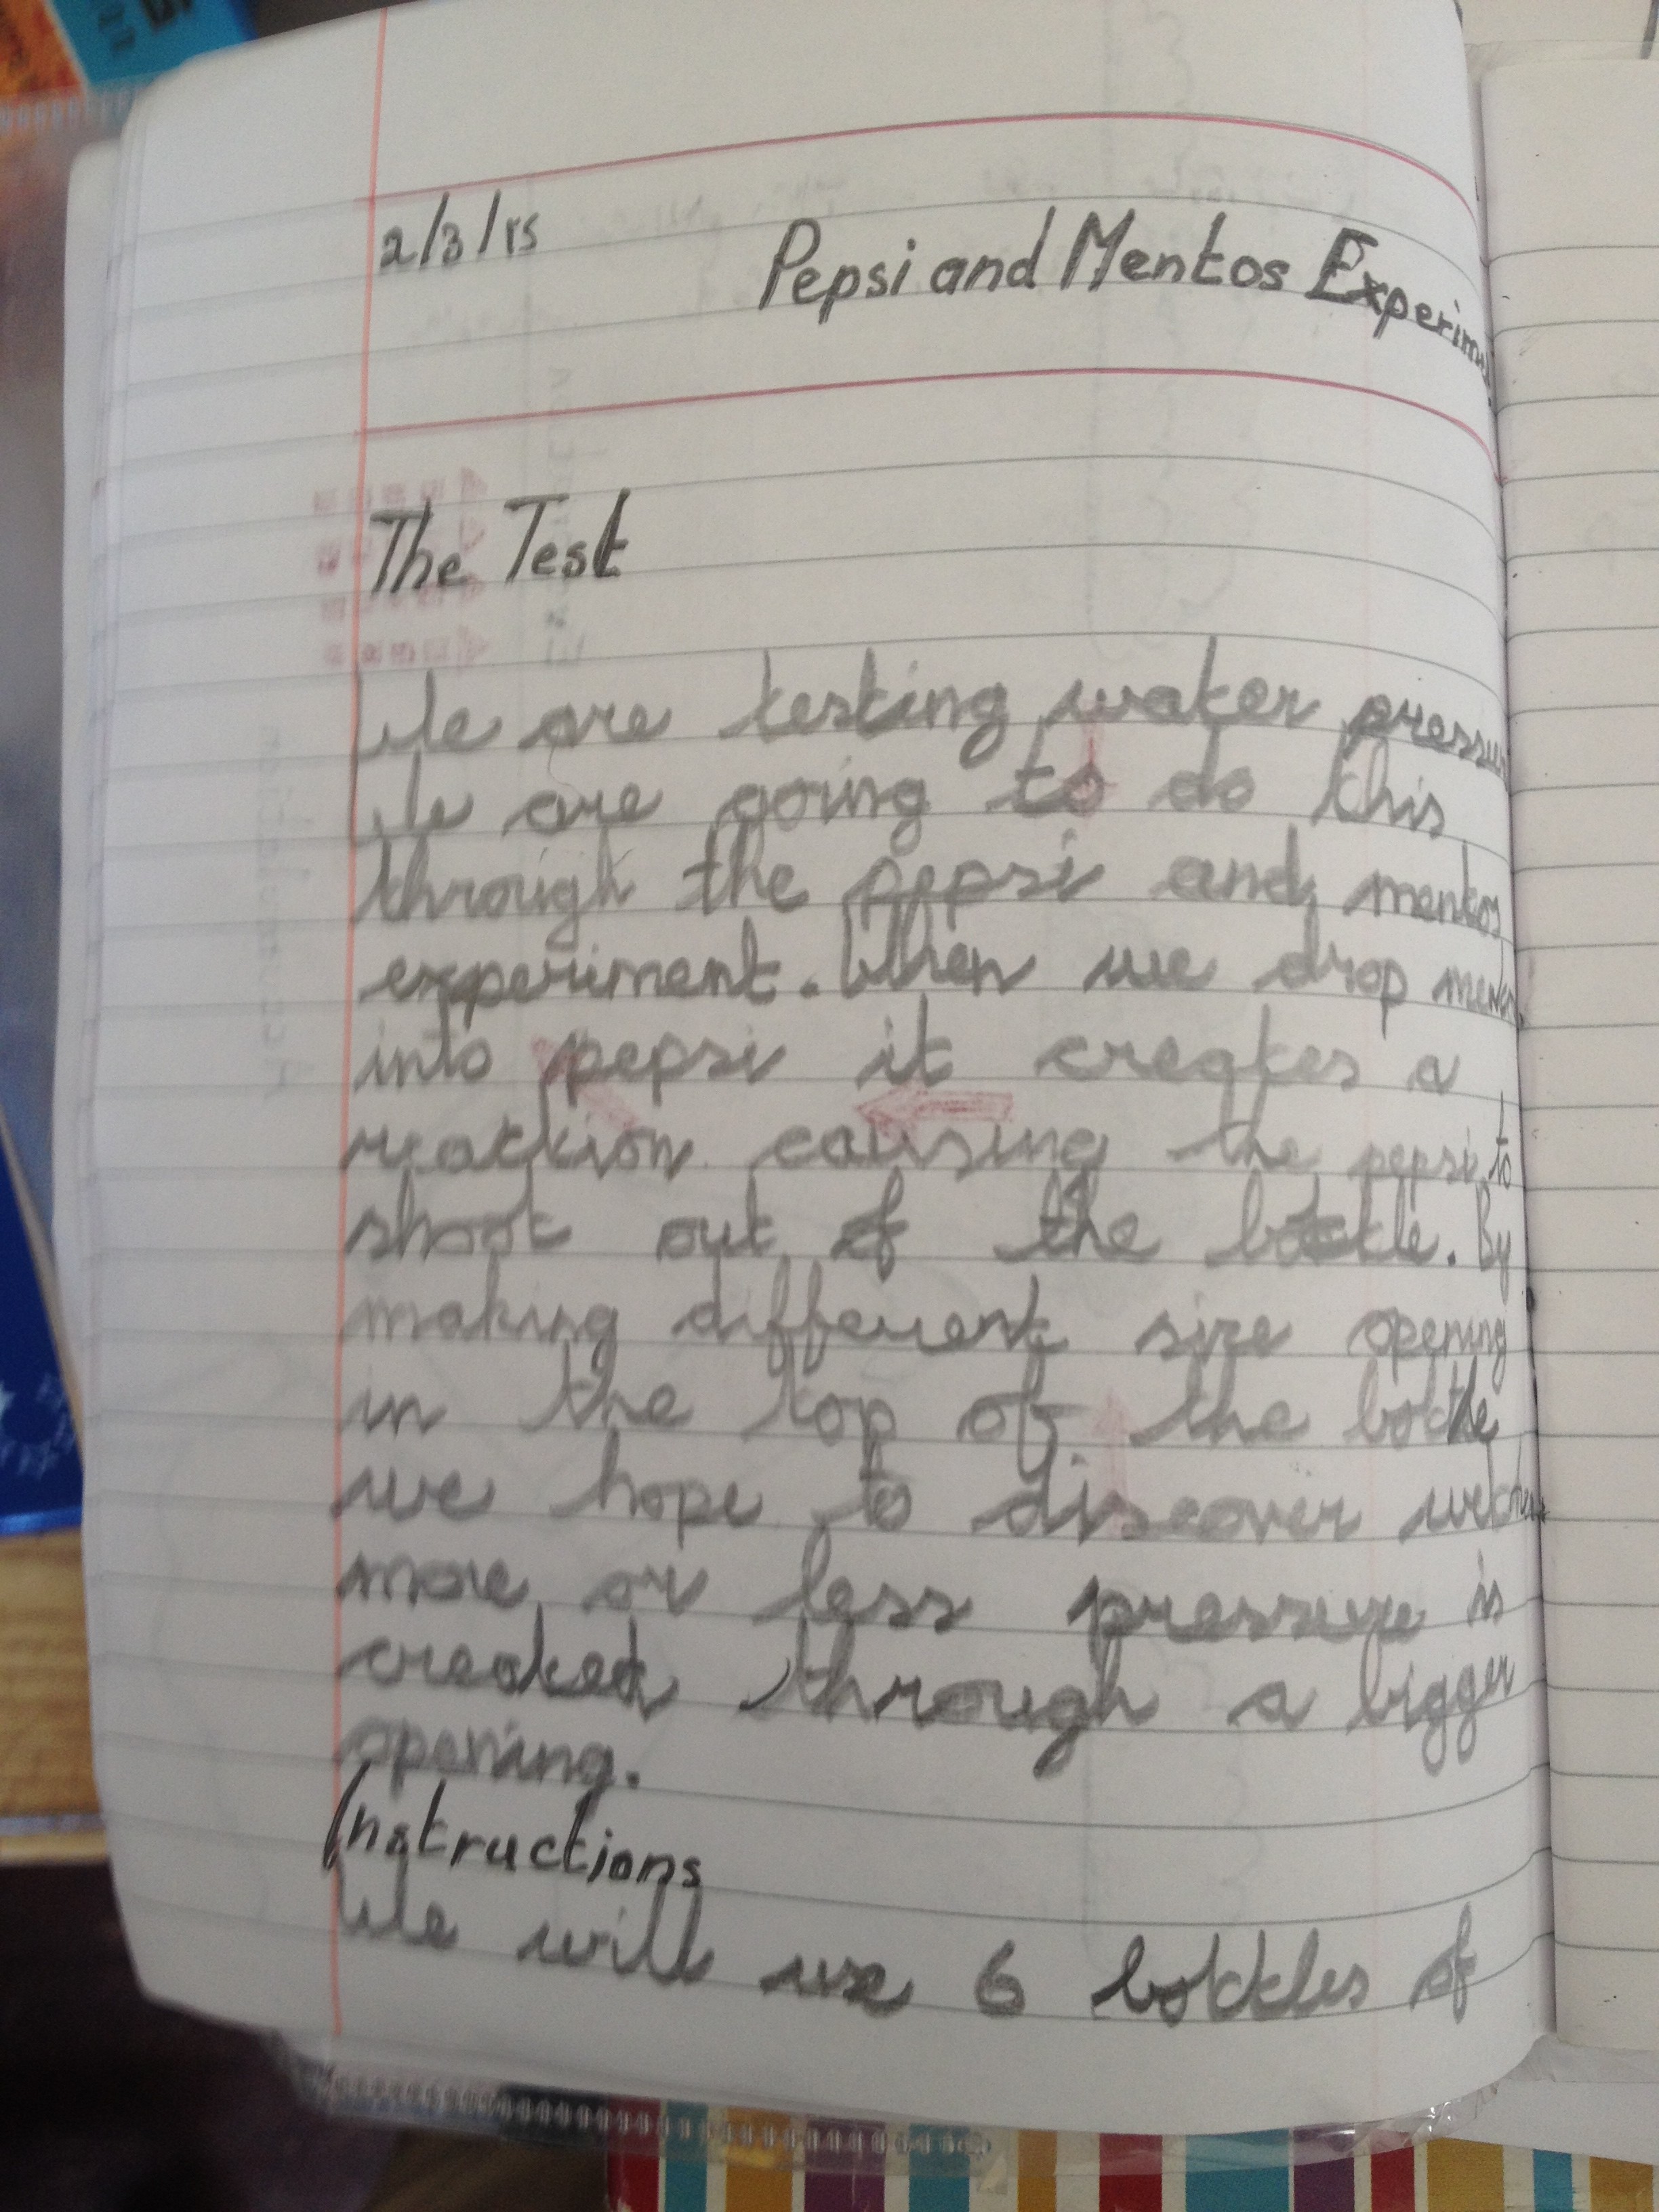 2/3/15
Pepsi and Mentos Experim
The Test
We are testing water pressur
We are going to do this
through the pepsi and mentos
experiment. When we drop
into pepsi it creates a
reaction causing the pepsi to
shoot out of the bottle. By
making different size opening
in the top of the bottle
we hope to discover
more or less pressure is
created through a bigger
opening.
Instructions
We will use 6 bottles of